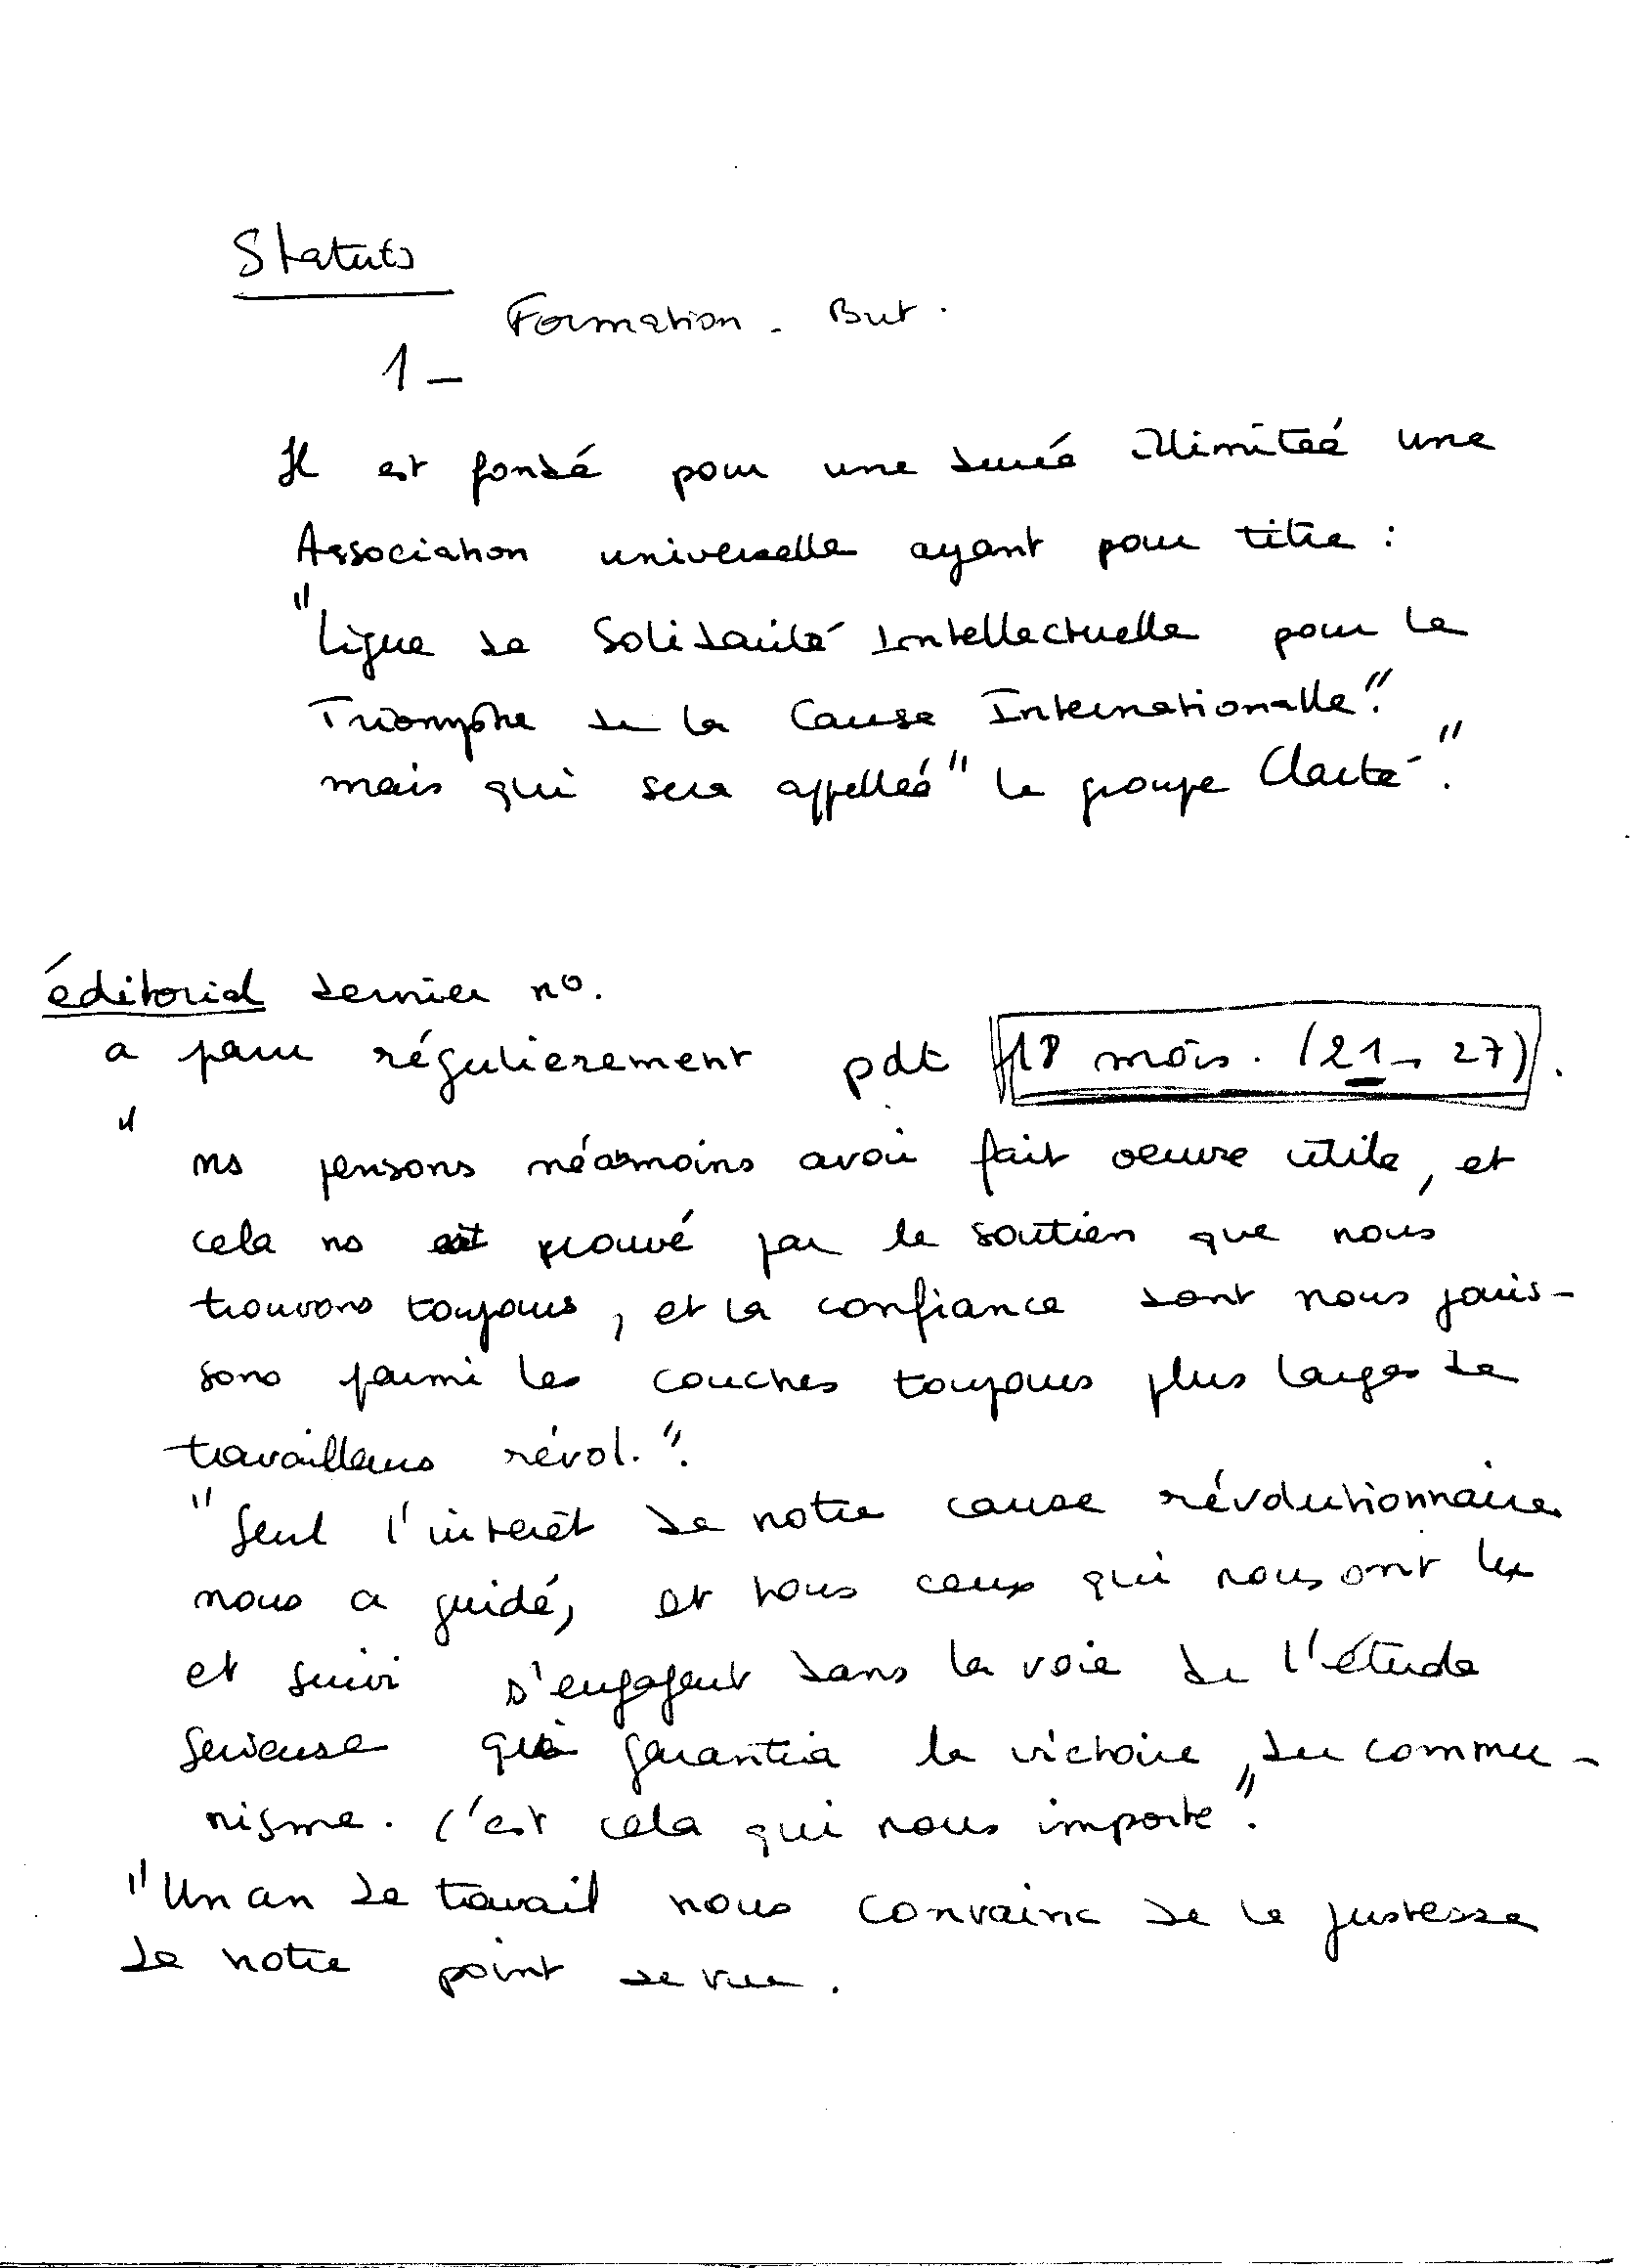 Statuts
Formation - But.
1 -
Il est fondé pour une durée illimiteé une
Association universelle ayant pour titre :
"Ligue de Solidarité Intellectuelle pour le
Triomphe de la Cause Internationalle".
mais qui sera appelleé "le groupe Clarté".
éditorial dernier no.
a paru régulierement pdt 18 mois. (21 - 27).
"
ns pensons néanmoins avoir fait oeuvre utile, et
cela ns est prouvé par le soutien que nous
trouvons toujours, et la confiance dont nous jouis-
sons parmi les couches toujours plus larges de
travailleurs révol.".
"Seul l'intérêt de notre cause révolutionnaire
nous a guidé, et tous ceux qui nous ont lu
et suivi s'engagent dans la voie de l'étude
serieuse qui garantira la victoire du commu-
nisme. C'est cela qui nous importe".
"Un an de travail nous convainc de la justesse
de notre point de vue.